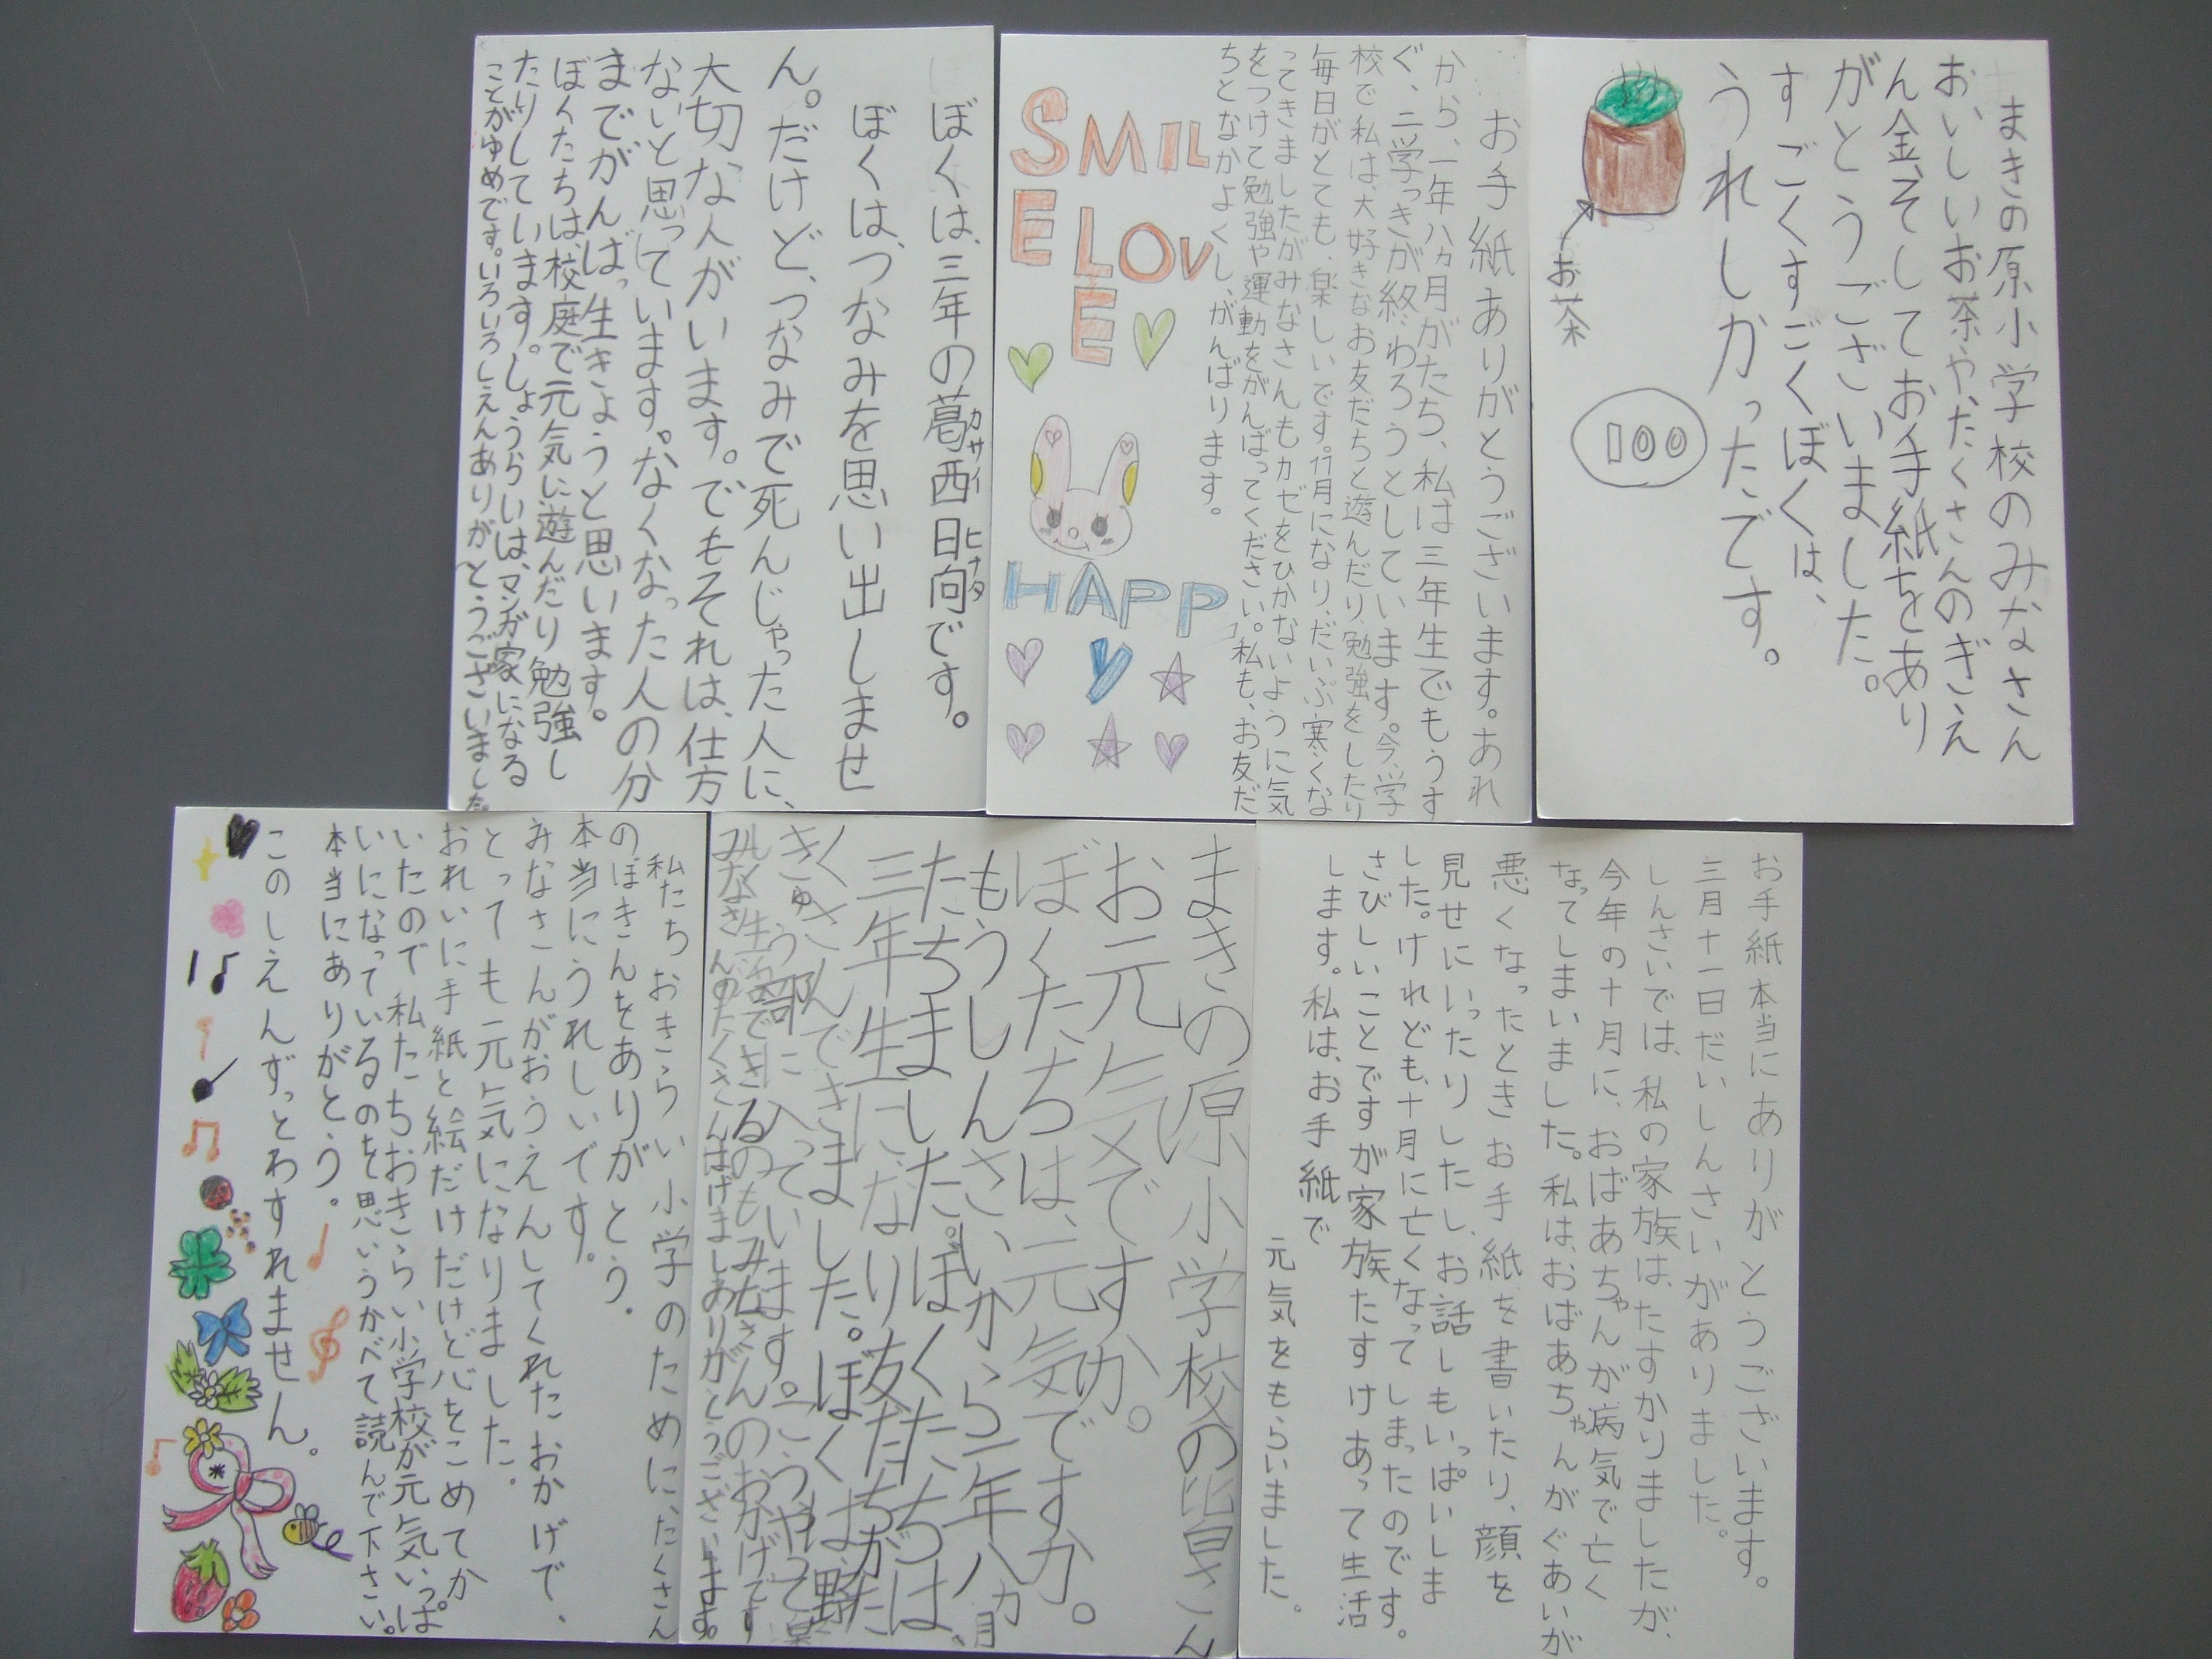 まきの原小学校のみなさん
おいしいお茶や、たくさんのぎえ
ん金、そしてお手紙をあり
がとうございました。
すごくすごくぼくは、
うれしかったです。
お茶
100
お手紙ありがとうございます。あれ
から、一年八ヵ月がたち、私は三年生でもうす
ぐ、二学っきが終わろうとしています。今、学
校で私は、大好きなお友だちと遊んだり、勉強をしたり
毎日がとても、楽しいです。11月になり、だいぶ寒くな
ってきましたがみなさんもカゼをひかないように気
をつけて勉強や運動をがんばってください。私も、お友だ
ちとなかよくし、がんばります。
SMIL
E LOV
E
HAPP
y
ぼくは、三年の葛西日向です。
カサイ ヒナタ
ぼくは、つなみを思い出しませ
ん。だけど、つなみで死んじゃった人に、
大切な人がいます。でもそれは、仕方
ないと思っています。なくなった人の分
までがんばっ生きようと思います。
ぼくたちは、校庭で元気に遊んだり勉強し
たりしています。しょうらいは、マンガ家になる
ことがゆめです。いろいろしえんありがとうございました。
お手紙本当にありがとうございます。
三月十一日だいしんさいがありました。
しんさいでは、私の家族は、たすかりましたが、
今年の十月に、おばあちゃんが病気で亡く
なってしまいました。私は、おばあちゃんがぐあいが
悪くなったときお手紙を書いたり、顔を
見せにいったりしたし、お話しもいっぱいしま
した。けれども、十月に亡くなってしまったのです。
さびしいことですが家族たすけあって生活
します。私は、お手紙で
元気をもらいました。
まきの原小学校の皆さん
お元気ですか。
ぼくたちは、元気です。
もうしんさいから一年八カ月
たちました。ぼくたちは、
三年生になり友だちがた
くさんできました。ぼくは、野
きゅう部に入っています。こうやって楽
しく生活できるのもみなさんのおかげです
みなさんのたくさんはげましありがとうございます。
私たちおきらい小学のために、たくさん
のぼきんをありがとう。
本当にうれしいです。
みなさんがおうえんしてくれたおかげで、
とっても元気になりました。
おれいに手紙と絵だけだけど心をこめてか
いたので私たちおきらい小学校が元気いっぱ
いになっているのを思いうかべて読んで下さい。
本当にありがとう。
このしえんずっとわすれません。